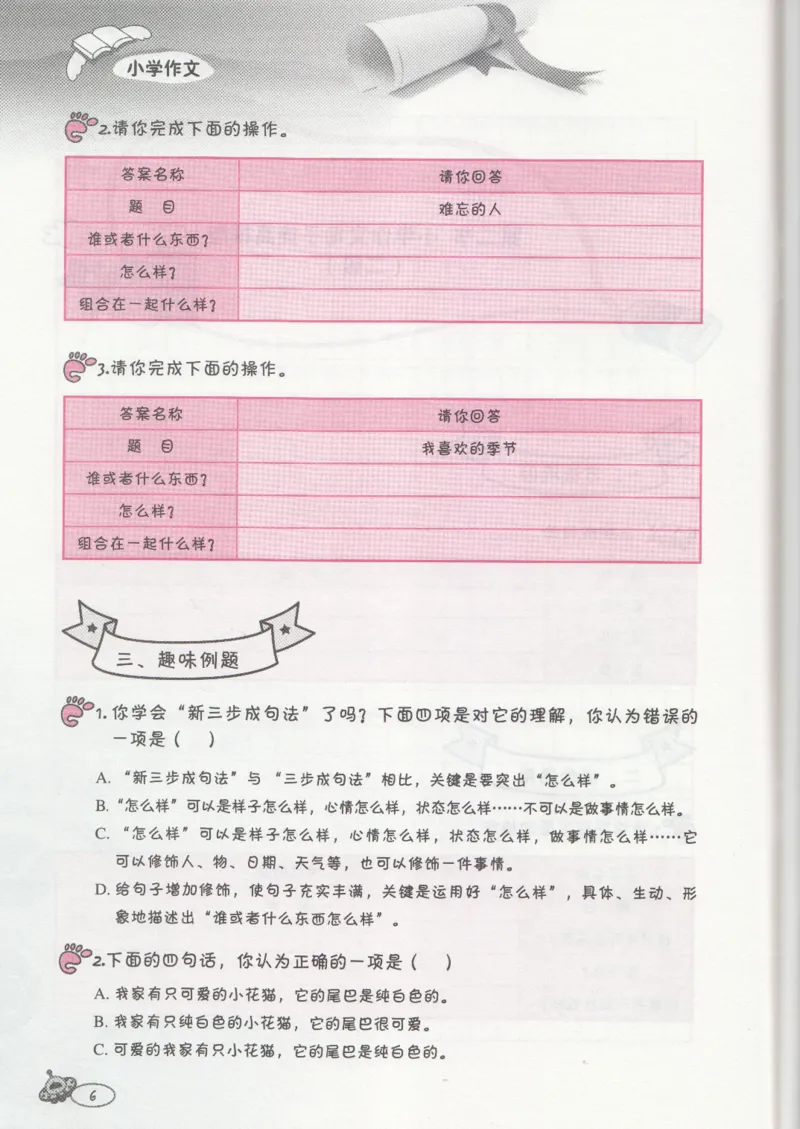 小学作文
2.请你完成下面的操作。
答案名称 请你回答
题 目 难忘的人
谁或者什么东西?
怎么样?
组合在一起什么样?
3.请你完成下面的操作。
答案名称 请你回答
题 目 我喜欢的季节
谁或者什么东西?
怎么样?
组合在一起什么样?
三、趣味例题
1. 你学会“新三步成句法”了吗?下面四项是对它的理解,你认为错误的
一项是( )
A. “新三步成句法”与“三步成句法”相比,关键是要突出“怎么样”。
B.“怎么样”可以是样子怎么样,心情怎么样,状态怎么样……不可以是做事情怎么样。
C. “怎么样”可以是样子怎么样,心情怎么样,状态怎么样,做事情怎么样……它
可以修饰人、物、日期、天气等,也可以修饰一件事情。
D. 给句子增加修饰,使句子充实丰满,关键是运用好“怎么样”,具体、生动、形
象地描述出“谁或者什么东西怎么样”。
2.下面的四句话,你认为正确的一项是( )
A. 我家有只可爱的小花猫,它的尾巴是纯白色的。
B. 我家有只纯白色的小花猫,它的尾巴很可爱。
C. 可爱的我家有只小花猫,它的尾巴是纯白色的。
6